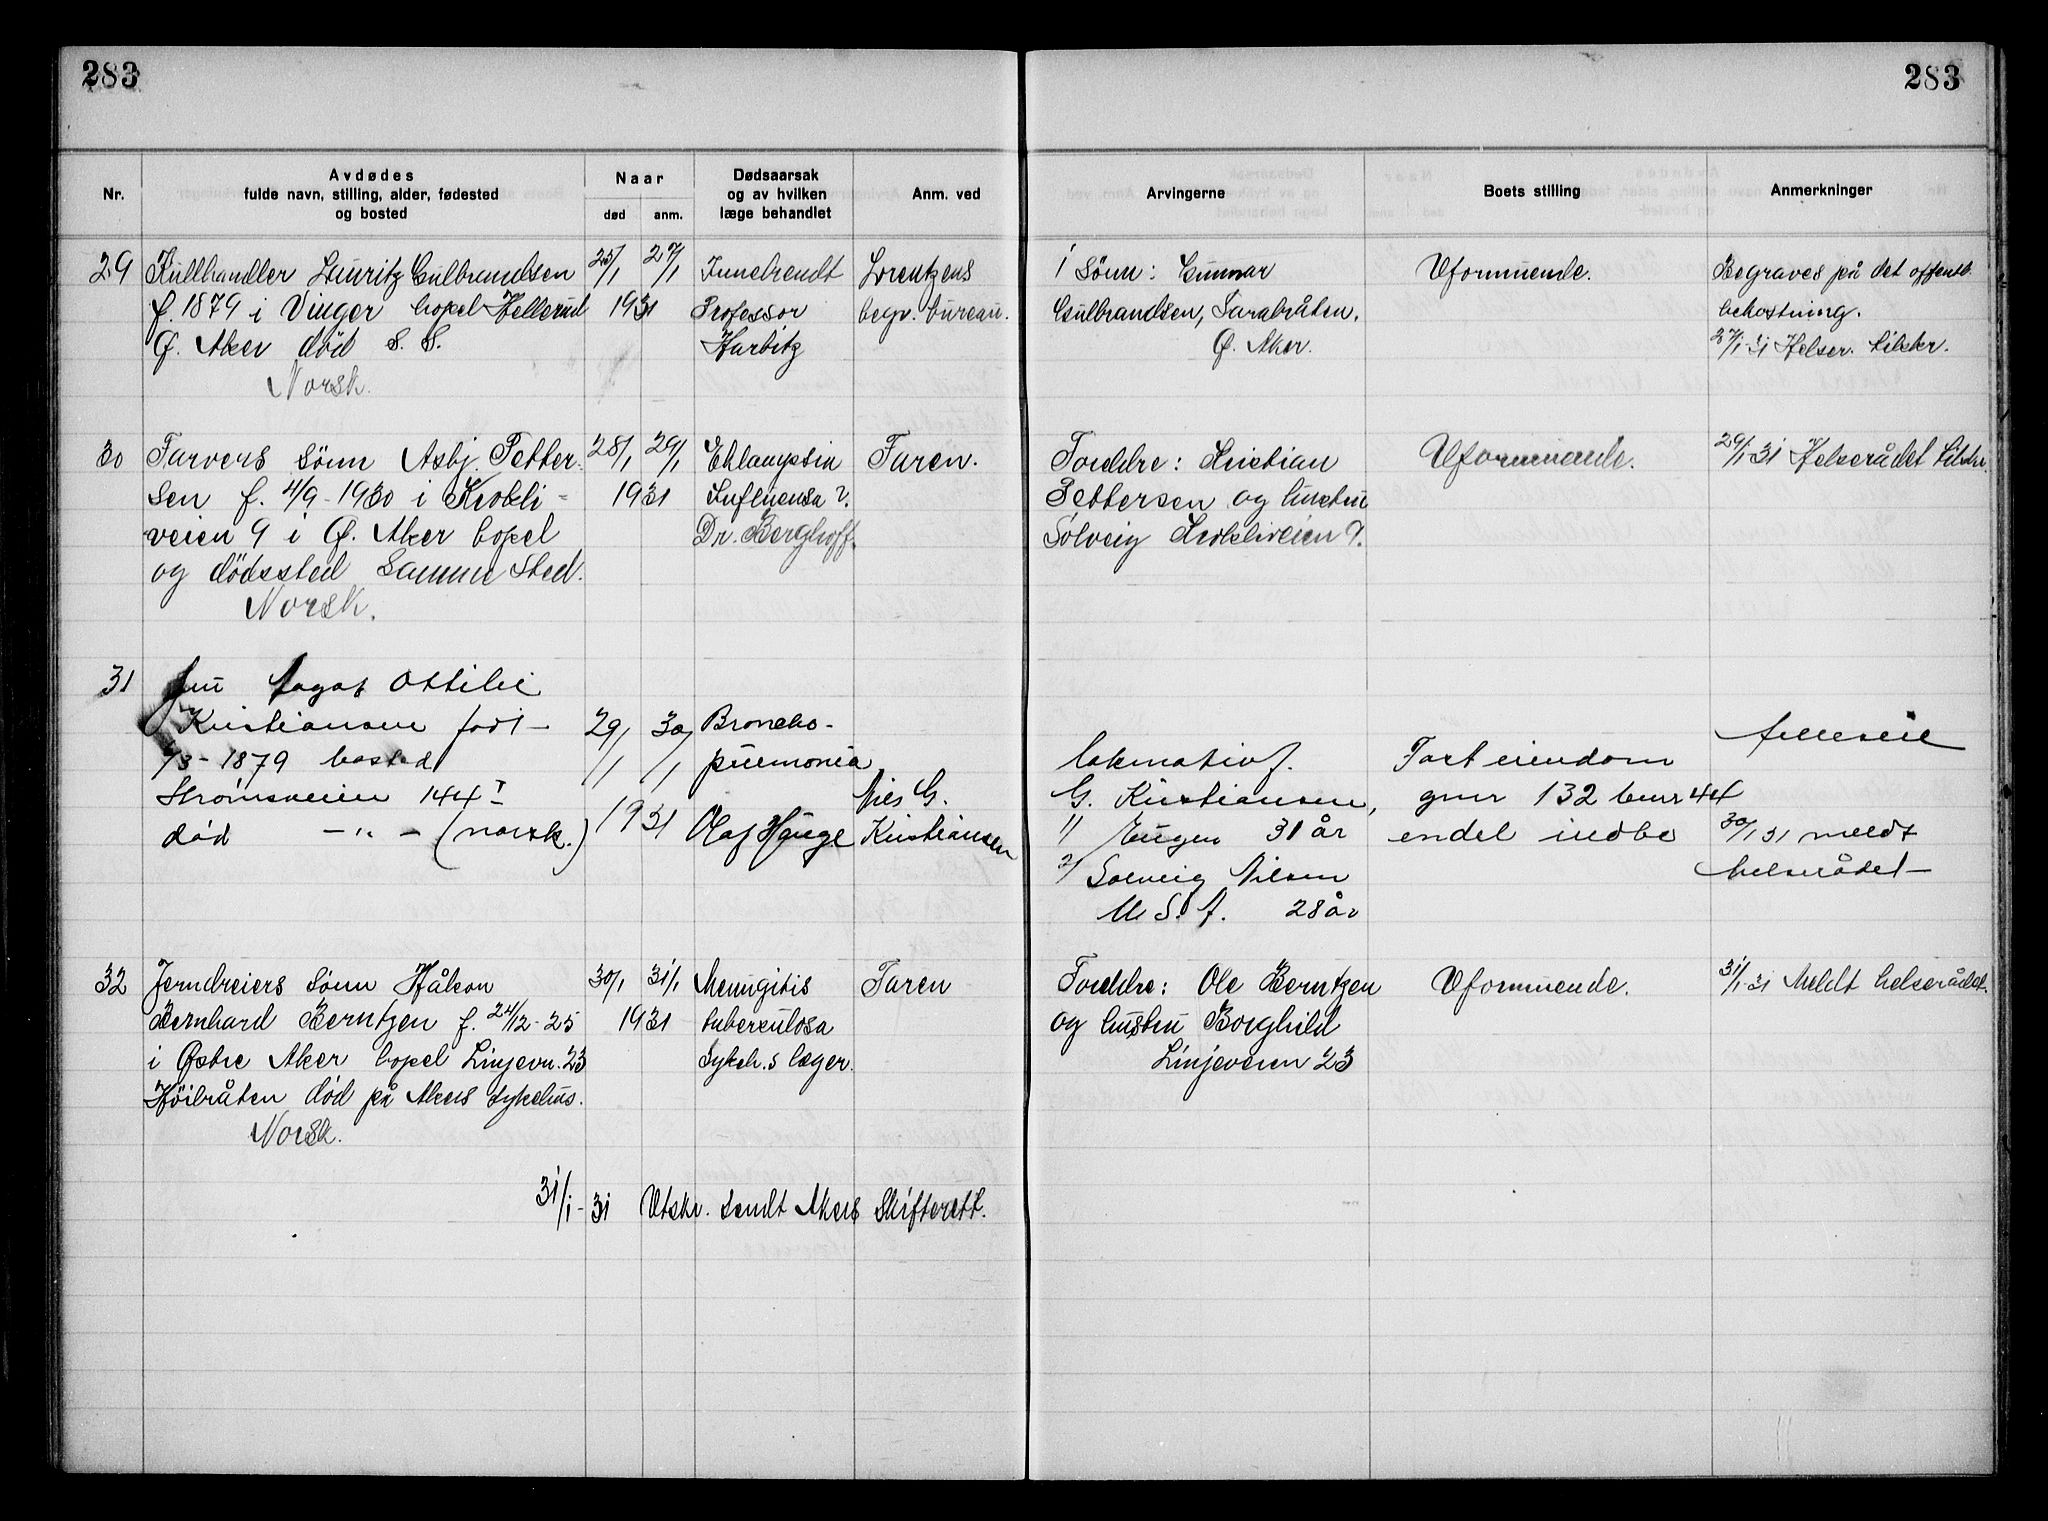 283
283
Nr.
Avdødes
fulde navn, stilling, alder, fødested
og bosted
Naar
død
anm.
Dødsaarsak
og av hvilken
læge behandlet
Anm. ved
Arvingerne
Boets stilling
Anmerkninger
29
Kullhandler Lauritz Gulbrandsen
f. 1879 i Vinger bopel Hellerud
Ø. Aker død S. S.
Norsk.
25/1 27/1
1931
Innebrendt
Professor
Harbitz
Lorentzens
begr. bureau.
1 Sønn: Gunnar
Gulbrandsen, Sarabråten.
Ø. Aker.
Uformuende.
Begraves på det offentl.
bekostning.
27/1-31 Helser. tilskr.
30
Farvers sønn Asbj. Petter-
sen f. 4/9-1930 i Krokli-
veien 9 i Ø. Aker bopel
og dødssted Samme Sted.
Norsk.
28/1 29/1
1931
Eklampsia
Influensa?
Dr. Berghoff.
Faren.
Foreldre: Kristian
Pettersen og hustru
Solveig Krokliveien 9.
Uformuende.
29/1-31 Helserådet tilskr.
31
fru Aagot Ottilie
Kristiansen født
/3-1879 bosted
Strømsveien 144 I
død -"- (norsk.)
29/1 30/1
1931
Broncho-
pneumonia
Olaf Hauge
Nils G.
Kristiansen
lokomotivf.
G. Kristiansen,
1/ Eugen 31 år
2/ Solveig Nilsen
M S. A. 28 år
Fast eiendom
gnr 132 bnr 44
endel indbo
felleseie
30/1 31 meldt
helserådet
32
Jerndreiers Sønn Håkon
Bernhard Berntzen f. 24/12-25
i Østre Aker bopel Linjevn. 23
Høibråten død på Akers sykehus.
Norsk.
30/1 31/1
1931
Meningitis
tuberculosa
Sykeh.s læger.
Faren
Foreldre: Ole Berntzen
og hustru Borghild
Linjeveien 23
Uformuende.
31/1-31 Meldt helserådet.
31/1-31 Utskr. sendt Akers Skifterett.